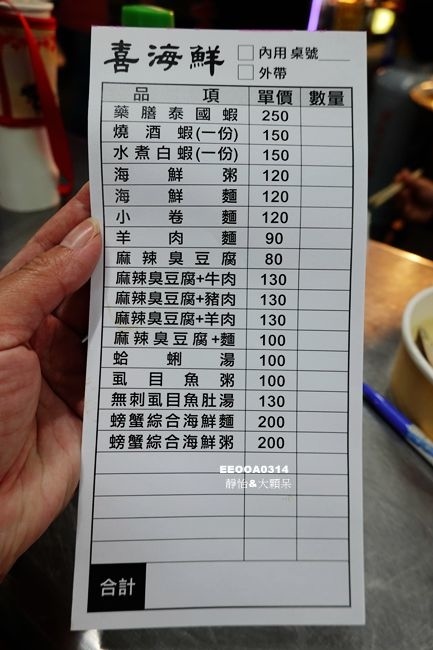 喜海鮮 □內用 桌號
□外帶
品項 單價 數量
藥膳泰國蝦 250
燒酒蝦(一份) 150
水煮白蝦(一份) 150
海鮮粥 120
海鮮麵 120
小卷麵 120
羊肉麵 90
麻辣臭豆腐 80
麻辣臭豆腐+牛肉 130
麻辣臭豆腐+豬肉 130
麻辣臭豆腐+羊肉 130
麻辣臭豆腐+麵 100
蛤蜊湯 100
虱目魚粥 100
無刺虱目魚肚湯 130
螃蟹綜合海鮮麵 200
螃蟹綜合海鮮粥 200
EEOOA0314
靜怡&大顆呆
合計